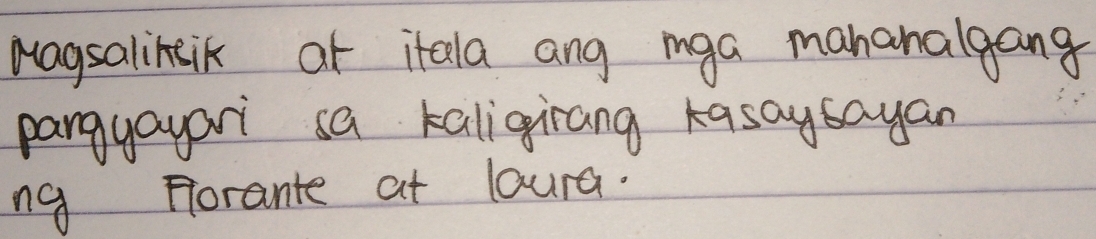 Magsaliksik at itala ang mga mahahalgang
pangyayari sa kaligirang kasaysayan
ng Florante at laura.